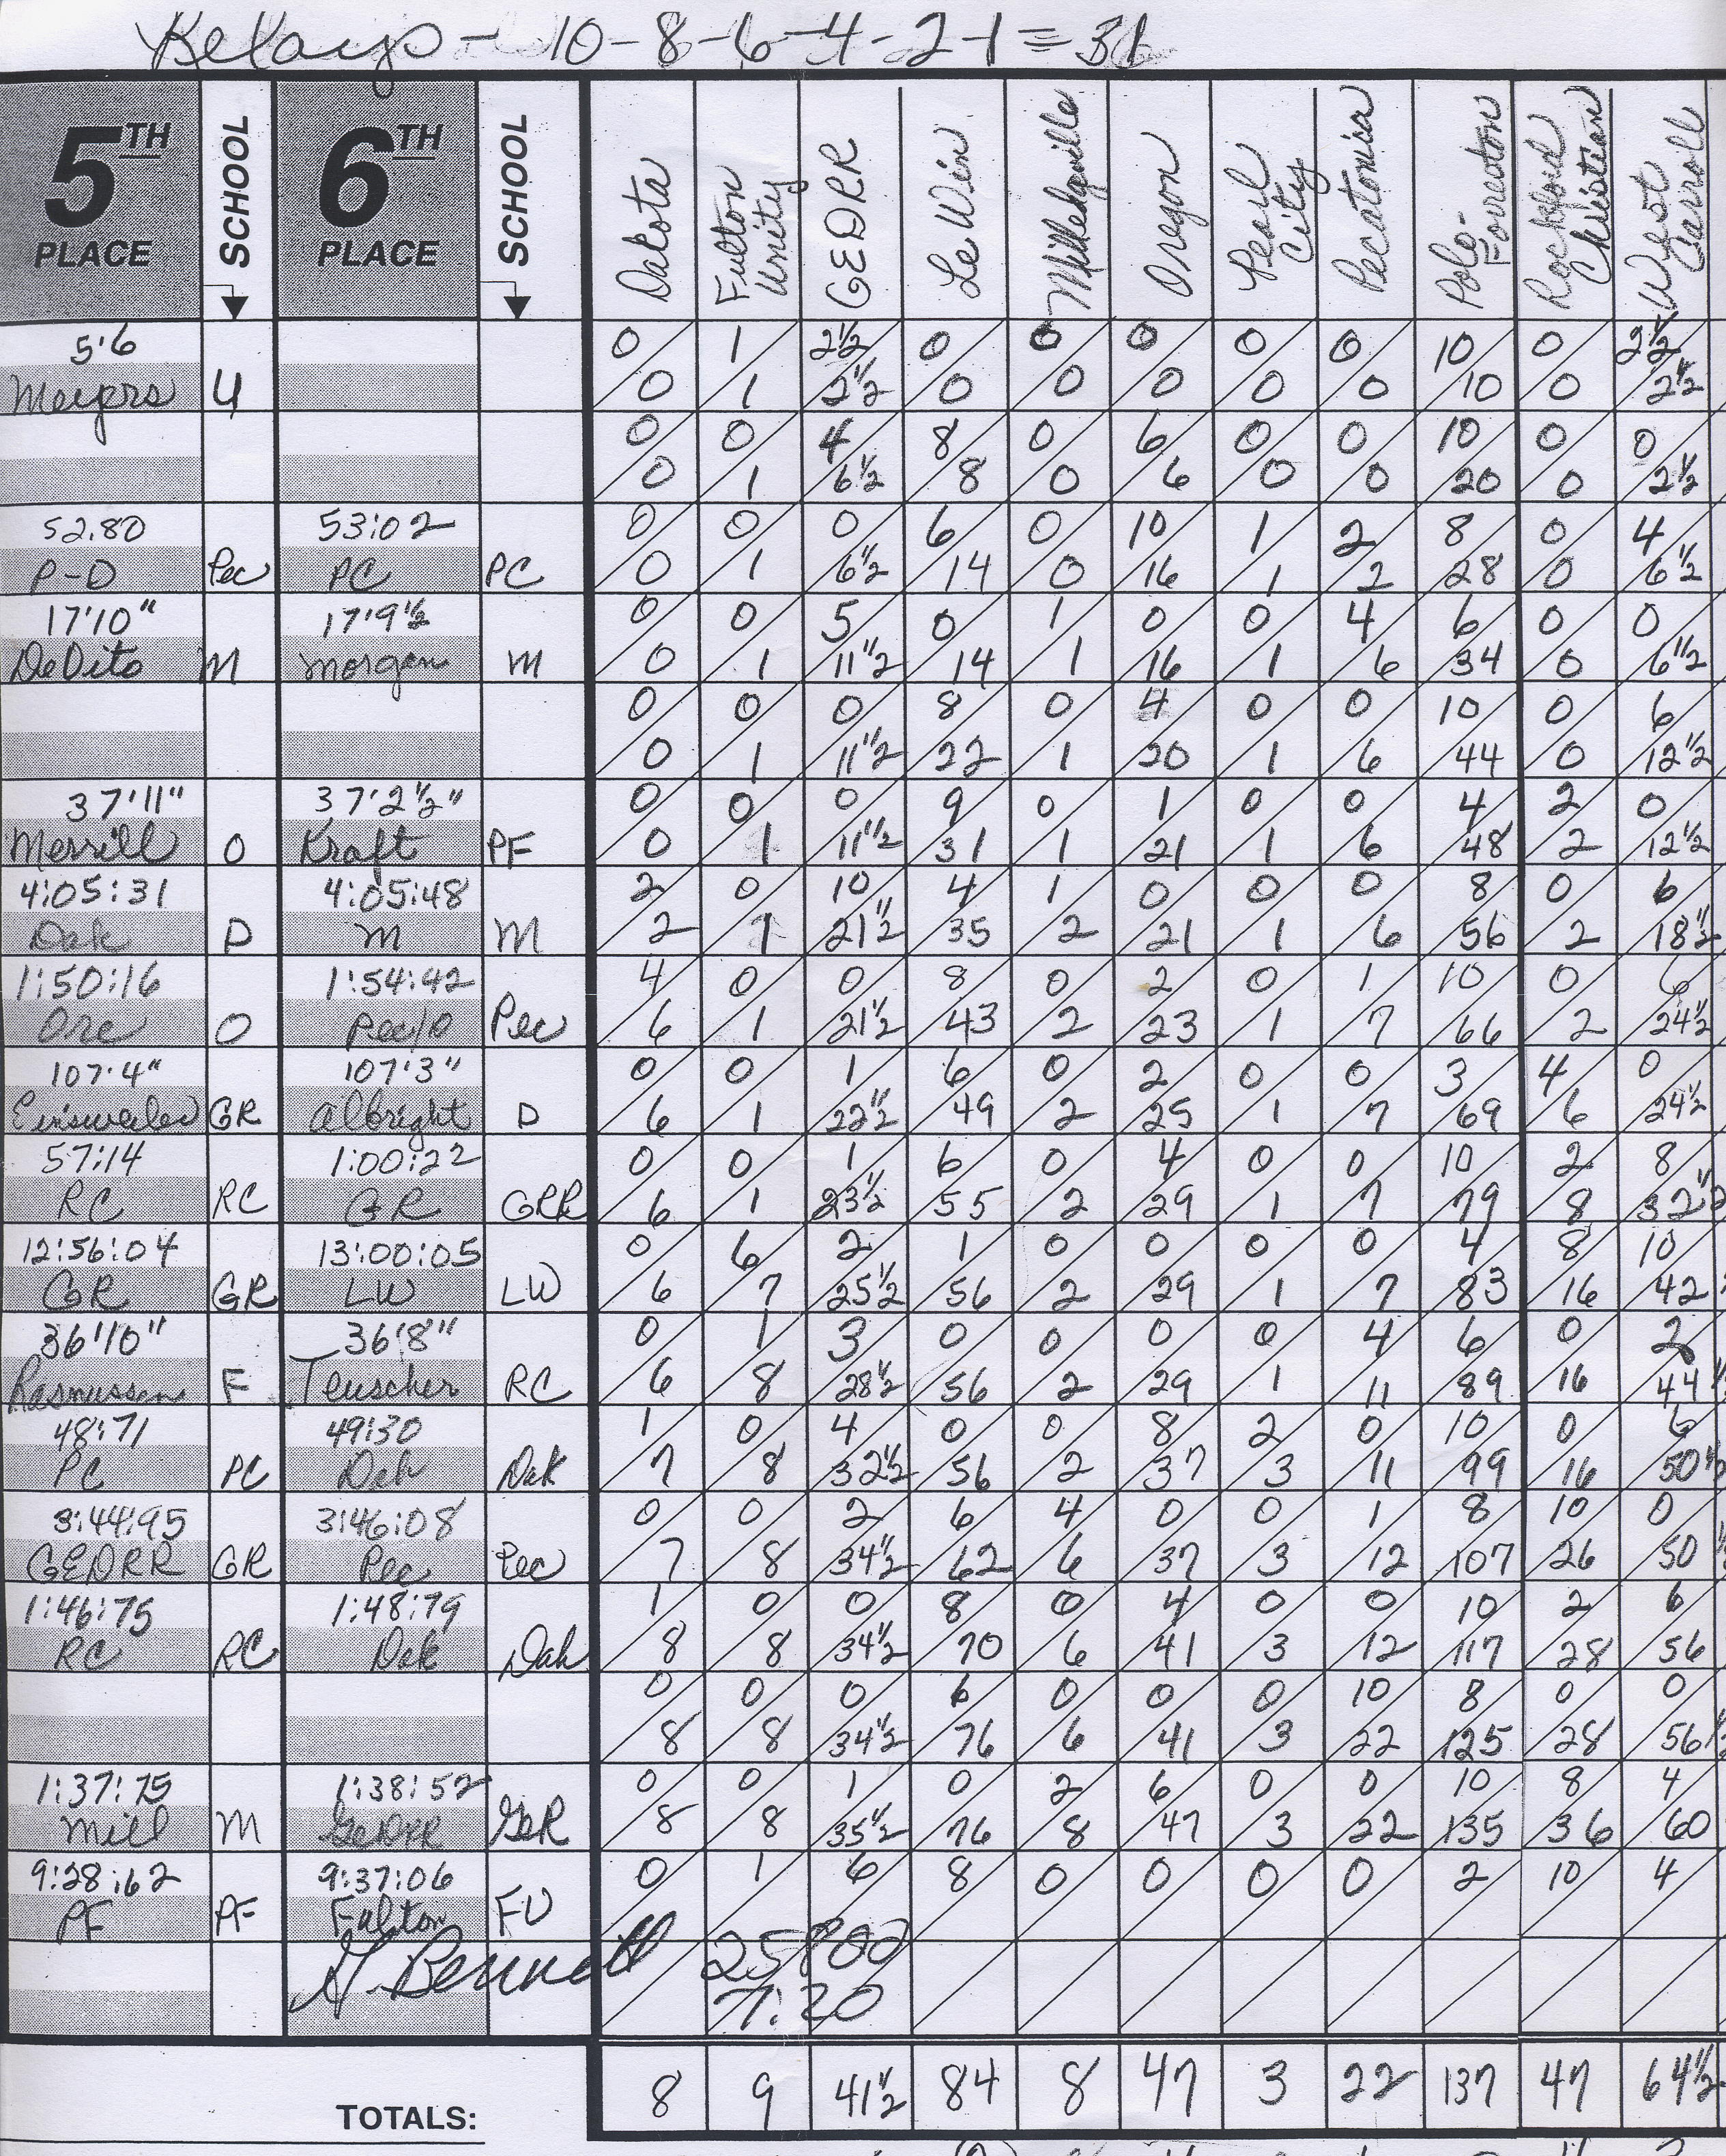 Relays - 10-8-6-4-2-1=31
5TH PLACE SCHOOL 6TH PLACE SCHOOL Dakota Fulton Unity GEDRR Le Win Milledgeville Oregon Pearl City Pecatonica Polo-Forreston Rockford Christian West Carroll
5'6 0 1 2½ 0 0 0 0 0 10 0 2½
Meyers U 0 1 2½ 0 0 0 0 0 10 0 2½
0 0 4 8 0 6 0 0 10 0 0
0 1 6½ 8 0 6 0 0 20 0 2½
52.80 53:02 0 0 0 6 0 10 1 2 8 0 4
P-D Pec PC PC 0 1 6½ 14 0 16 1 2 28 0 6½
17'10" 17'9½ 0 0 5 0 1 0 0 4 6 0 0
DeVito M Morgan M 0 1 11½ 14 1 16 1 6 34 0 6½
0 0 0 8 0 4 0 0 10 0 6
0 1 11½ 22 1 20 1 6 44 0 12½
37'11" 37'2½" 0 0 0 9 0 1 0 0 4 2 0
Merrill O Kraft PF 0 1 11½ 31 1 21 1 6 48 2 12½
4:05:31 4:05:48 2 0 10 4 1 0 0 0 8 0 6
Dak D M M 2 1 21½ 35 2 21 1 6 56 2 18½
1:50:16 1:54:42 4 0 0 8 0 2 0 1 10 0 6
Ore O Pec/O Pec 6 1 21½ 43 2 23 1 7 66 2 24½
107'4" 107'3" 0 0 1 6 0 2 0 0 3 4 0
Einsweiler GR Albright D 6 1 22½ 49 2 25 1 7 69 6 24½
57:14 1:00:22 0 0 1 6 0 4 0 0 10 2 8
RC RC GR GRR 6 1 23½ 55 2 29 1 7 79 8 32½
12:56:04 13:00:05 0 6 2 1 0 0 0 0 4 8 10
GR GR LW LW 6 7 25½ 56 2 29 1 7 83 16 42
36'10" 36'8" 0 1 3 0 0 0 0 4 6 0 2
Rasmussen F Teuscher RC 6 8 28½ 56 2 29 1 11 89 16 44
48:71 49:30 1 0 4 0 0 8 2 0 10 0 6
PC PC Dak Dak 7 8 32½ 56 2 37 3 11 99 16 50½
3:44:95 3:46:08 0 0 2 6 4 0 0 1 8 10 0
GEDRR GR Pec Pec 7 8 34½ 62 6 37 3 12 107 26 50½
1:46:75 1:48:79 1 0 0 8 0 4 0 0 10 2 6
RC RC Dak Dak 8 8 34½ 70 6 41 3 12 117 28 56
0 0 0 6 0 0 0 10 8 0 0
8 8 34½ 76 6 41 3 22 125 28 56½
1:37:75 1:38:52 0 0 1 0 2 6 0 0 10 8 4
Mill M GeDRR GeR 8 8 35½ 76 8 47 3 22 135 36 60
9:28:62 9:37:06 0 1 6 8 0 0 0 0 2 10 4
PF PF Fulton FU
G Bennett 25800
7:20
TOTALS: 8 9 41½ 84 8 47 3 22 137 47 64½